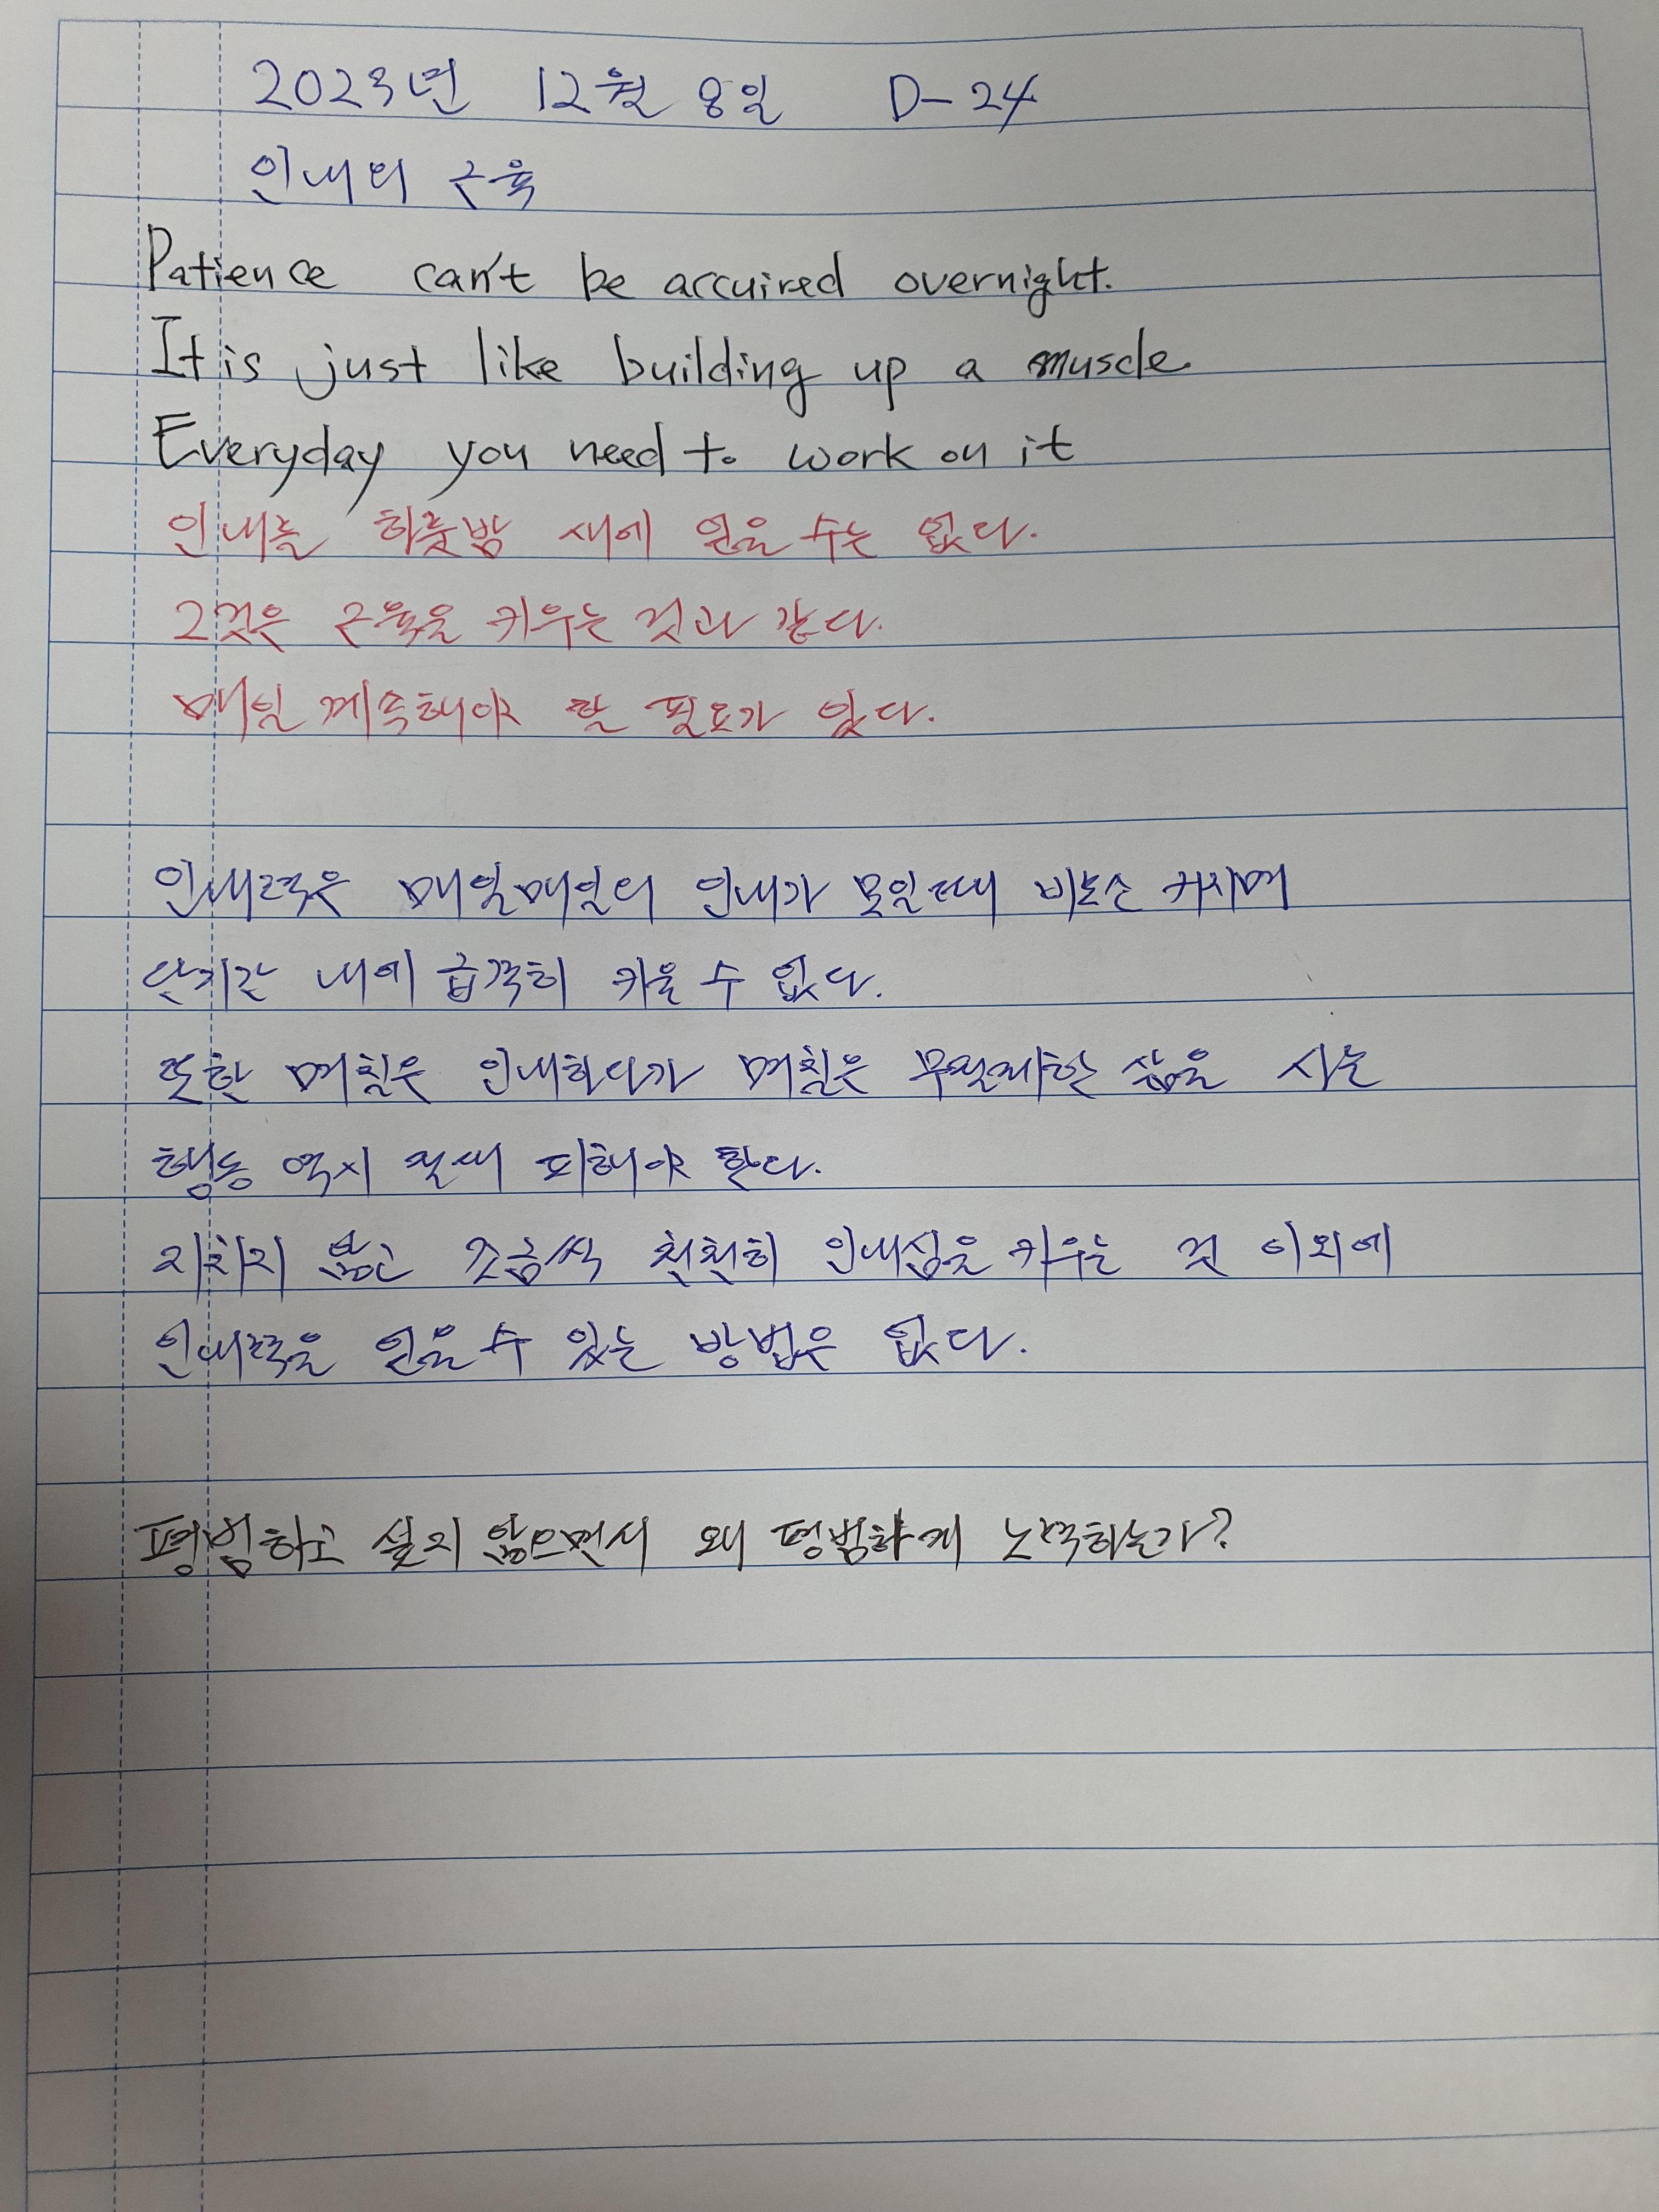 2023년 12월 8일 D-24
인내의 근육
Patience can't be accuired overnight.
It is just like building up a muscle.
Everyday you need to work on it
인내를 하룻밤 새에 얻을 수는 없다.
그것은 근육을 키우는 것과 같다.
매일 계속해야 할 필요가 있다.
인내력은 매일매일의 인내가 모일때 비로소 커지며
단기간 내에 급격히 키울 수 없다.
또한 며칠은 인내하다가 며칠은 무절제한 삶을 사는
행동 역시 절때 피해야 한다.
지치지 않고 조금씩 천천히 인내심을 키우는 것 이외에
인내력을 얻을 수 있는 방법은 없다.
평범하고 싶지 않으면서 왜 평범하게 노력하는가?